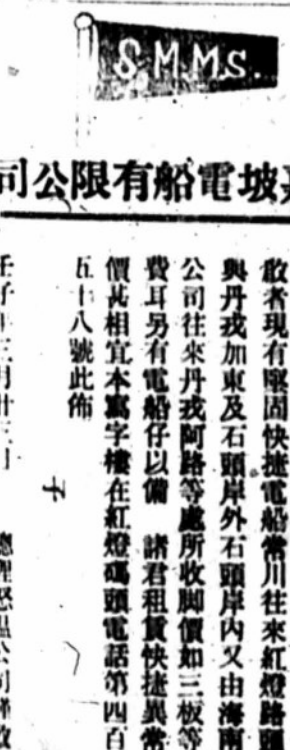 S.M.M.S.
坡電船有限公司
敬者現有堅固快捷電船常川往來紅燈路頭
與丹戎加東及石頭岸外石頭岸內又由海南
公司往來丹戎阿路等處所收脚價如三板等
費耳另有電船仔以備 諸君租賃快捷異常
價甚相宜本寫字樓在紅燈碼頭電話第四百
五十八號此佈
壬子年三月廿三日 總理